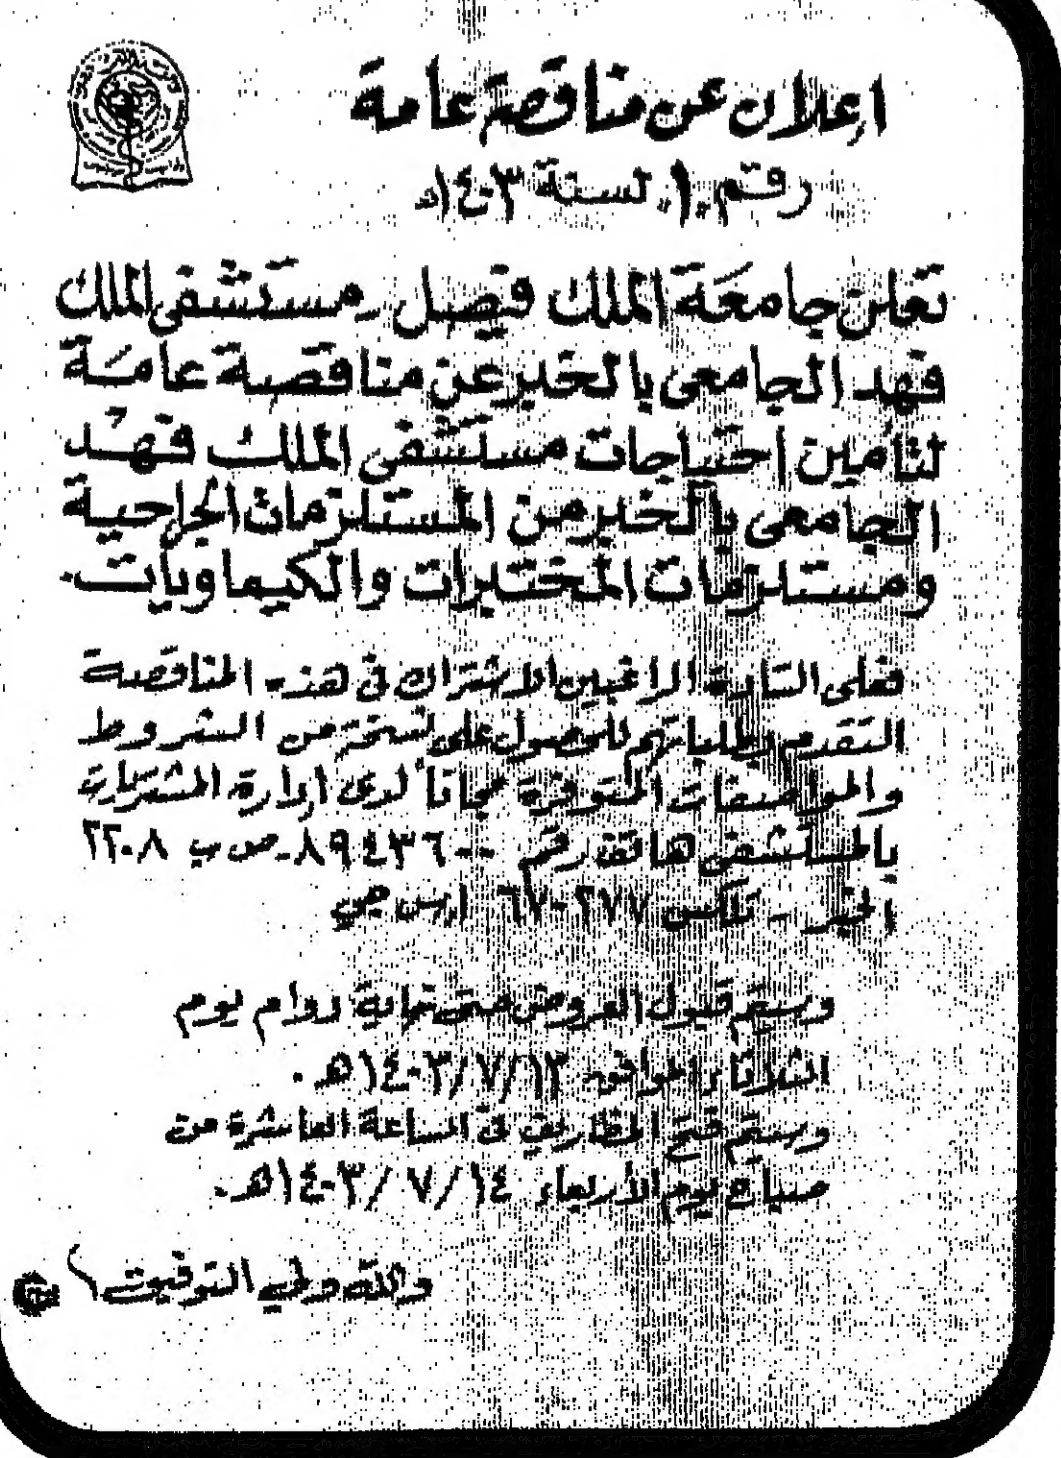 إعلان عن مناقصة عامة
رقم "١" لسنة ١٤٠٣هـ
تعلن جامعة الملك فيصل - مستشفى الملك
فهد الجامعى بالخبر عن مناقصة عامة
لتأمين احتياجات مستشفى الملك فهد
الجامعى بالخبر من المستلزمات الجراحية
ومستلزمات المختبرات والكيماويات.
فعلى السادة الراغبين الاشتراك فى هذه المناقصة
التقدم بطلباتهم للحصول على نسخة من الشروط
والمواصفات المتوفرة مجاناً لدى إدارة المشتريات
بالمستشفى هاتف رقم ٨٩٤٣٦٠٠ ص ب ٢٢٠٨
الخبر - تلكس ٦٧٠٢٧٧ إس جي
وسيتم قبول العروض حتى نهاية دوام يوم
الثلاثاء الموافق ١٤٠٣/٧/١٣هـ.
وسيتم فتح المظاريف فى الساعة العاشرة من
صباح يوم الأربعاء ١٤٠٣/٧/١٤هـ.
والله ولي التوفيق،